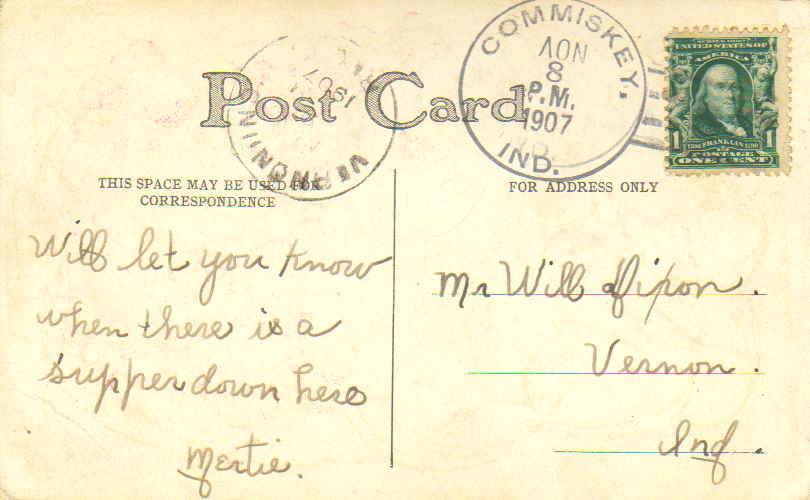 Post Card
COMMISKEY,
NOV
8
P.M.
1907
IND.
VERNON IN
1907
UNITED STATES OF
AMERICA
1 1
FRANKLIN
POSTAGE
ONE CENT
THIS SPACE MAY BE USED FOR
CORRESPONDENCE
FOR ADDRESS ONLY
Will let you know
when there is a
supper down here
Mertie.
Mr Will Dixon.
Vernon.
Ind.